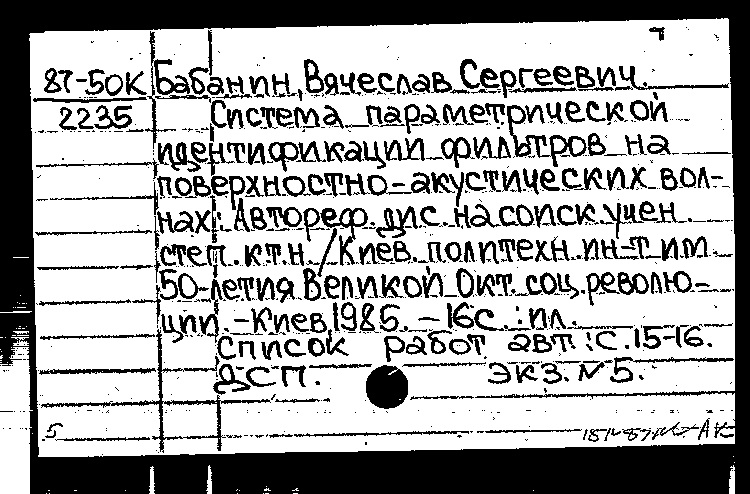 87-50К Бабанин, Вячеслав Сергеевич.
2235 Система параметрической
идентификации фильтров на
поверхностно-акустических вол-
нах: Автореф. дис. на соиск. учен.
степ. к.т.н. / Киев. политехн. ин-т им.
50-летия Великой Окт. соц. револю-
ции. - Киев, 1985. - 16с. : ил.
Список работ авт.: С. 15-16.
ДСП. ЭКЗ. N 5.
5